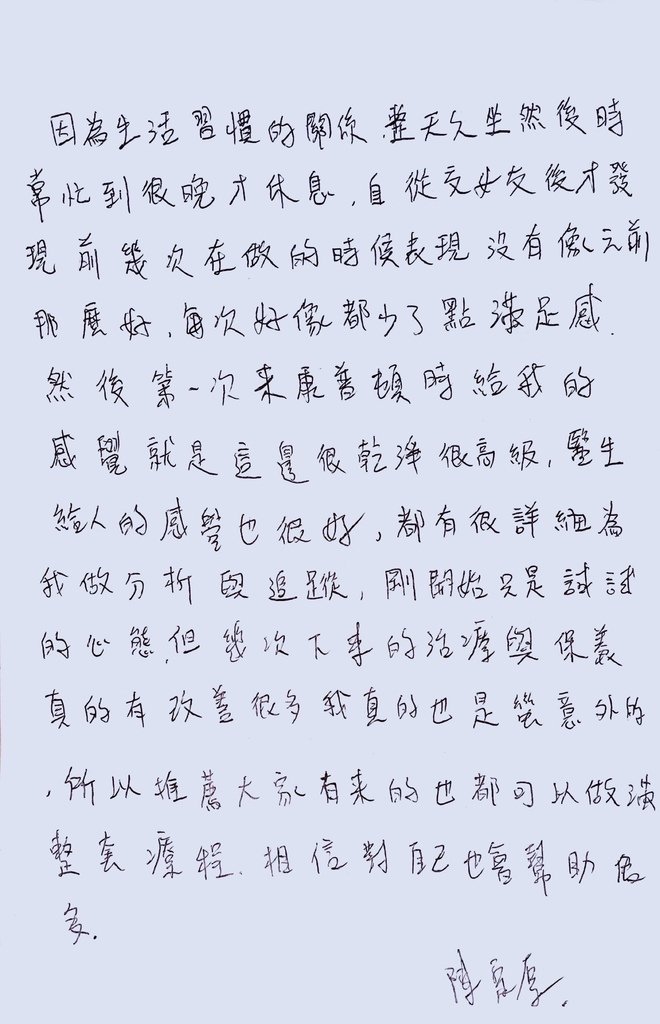 因為生活習慣的關係.整天久坐然後時
常忙到很晚才休息,自從交女友後才發
現前幾次在做的時候表現沒有像之前
那麼好,每次好像都少了點滿足感.
然後第一次來康普頓時給我的
感覺就是這邊很乾淨很高級,醫生
給人的感覺也很好,都有很詳細為
我做分析與追蹤,剛開始只是試試
的心態.但幾次下來的治療與保養
真的有改善很多我真的也是蠻意外的
,所以推薦大家有來的也都可以做滿
整套療程.相信對自己也會幫助很
多.
陳